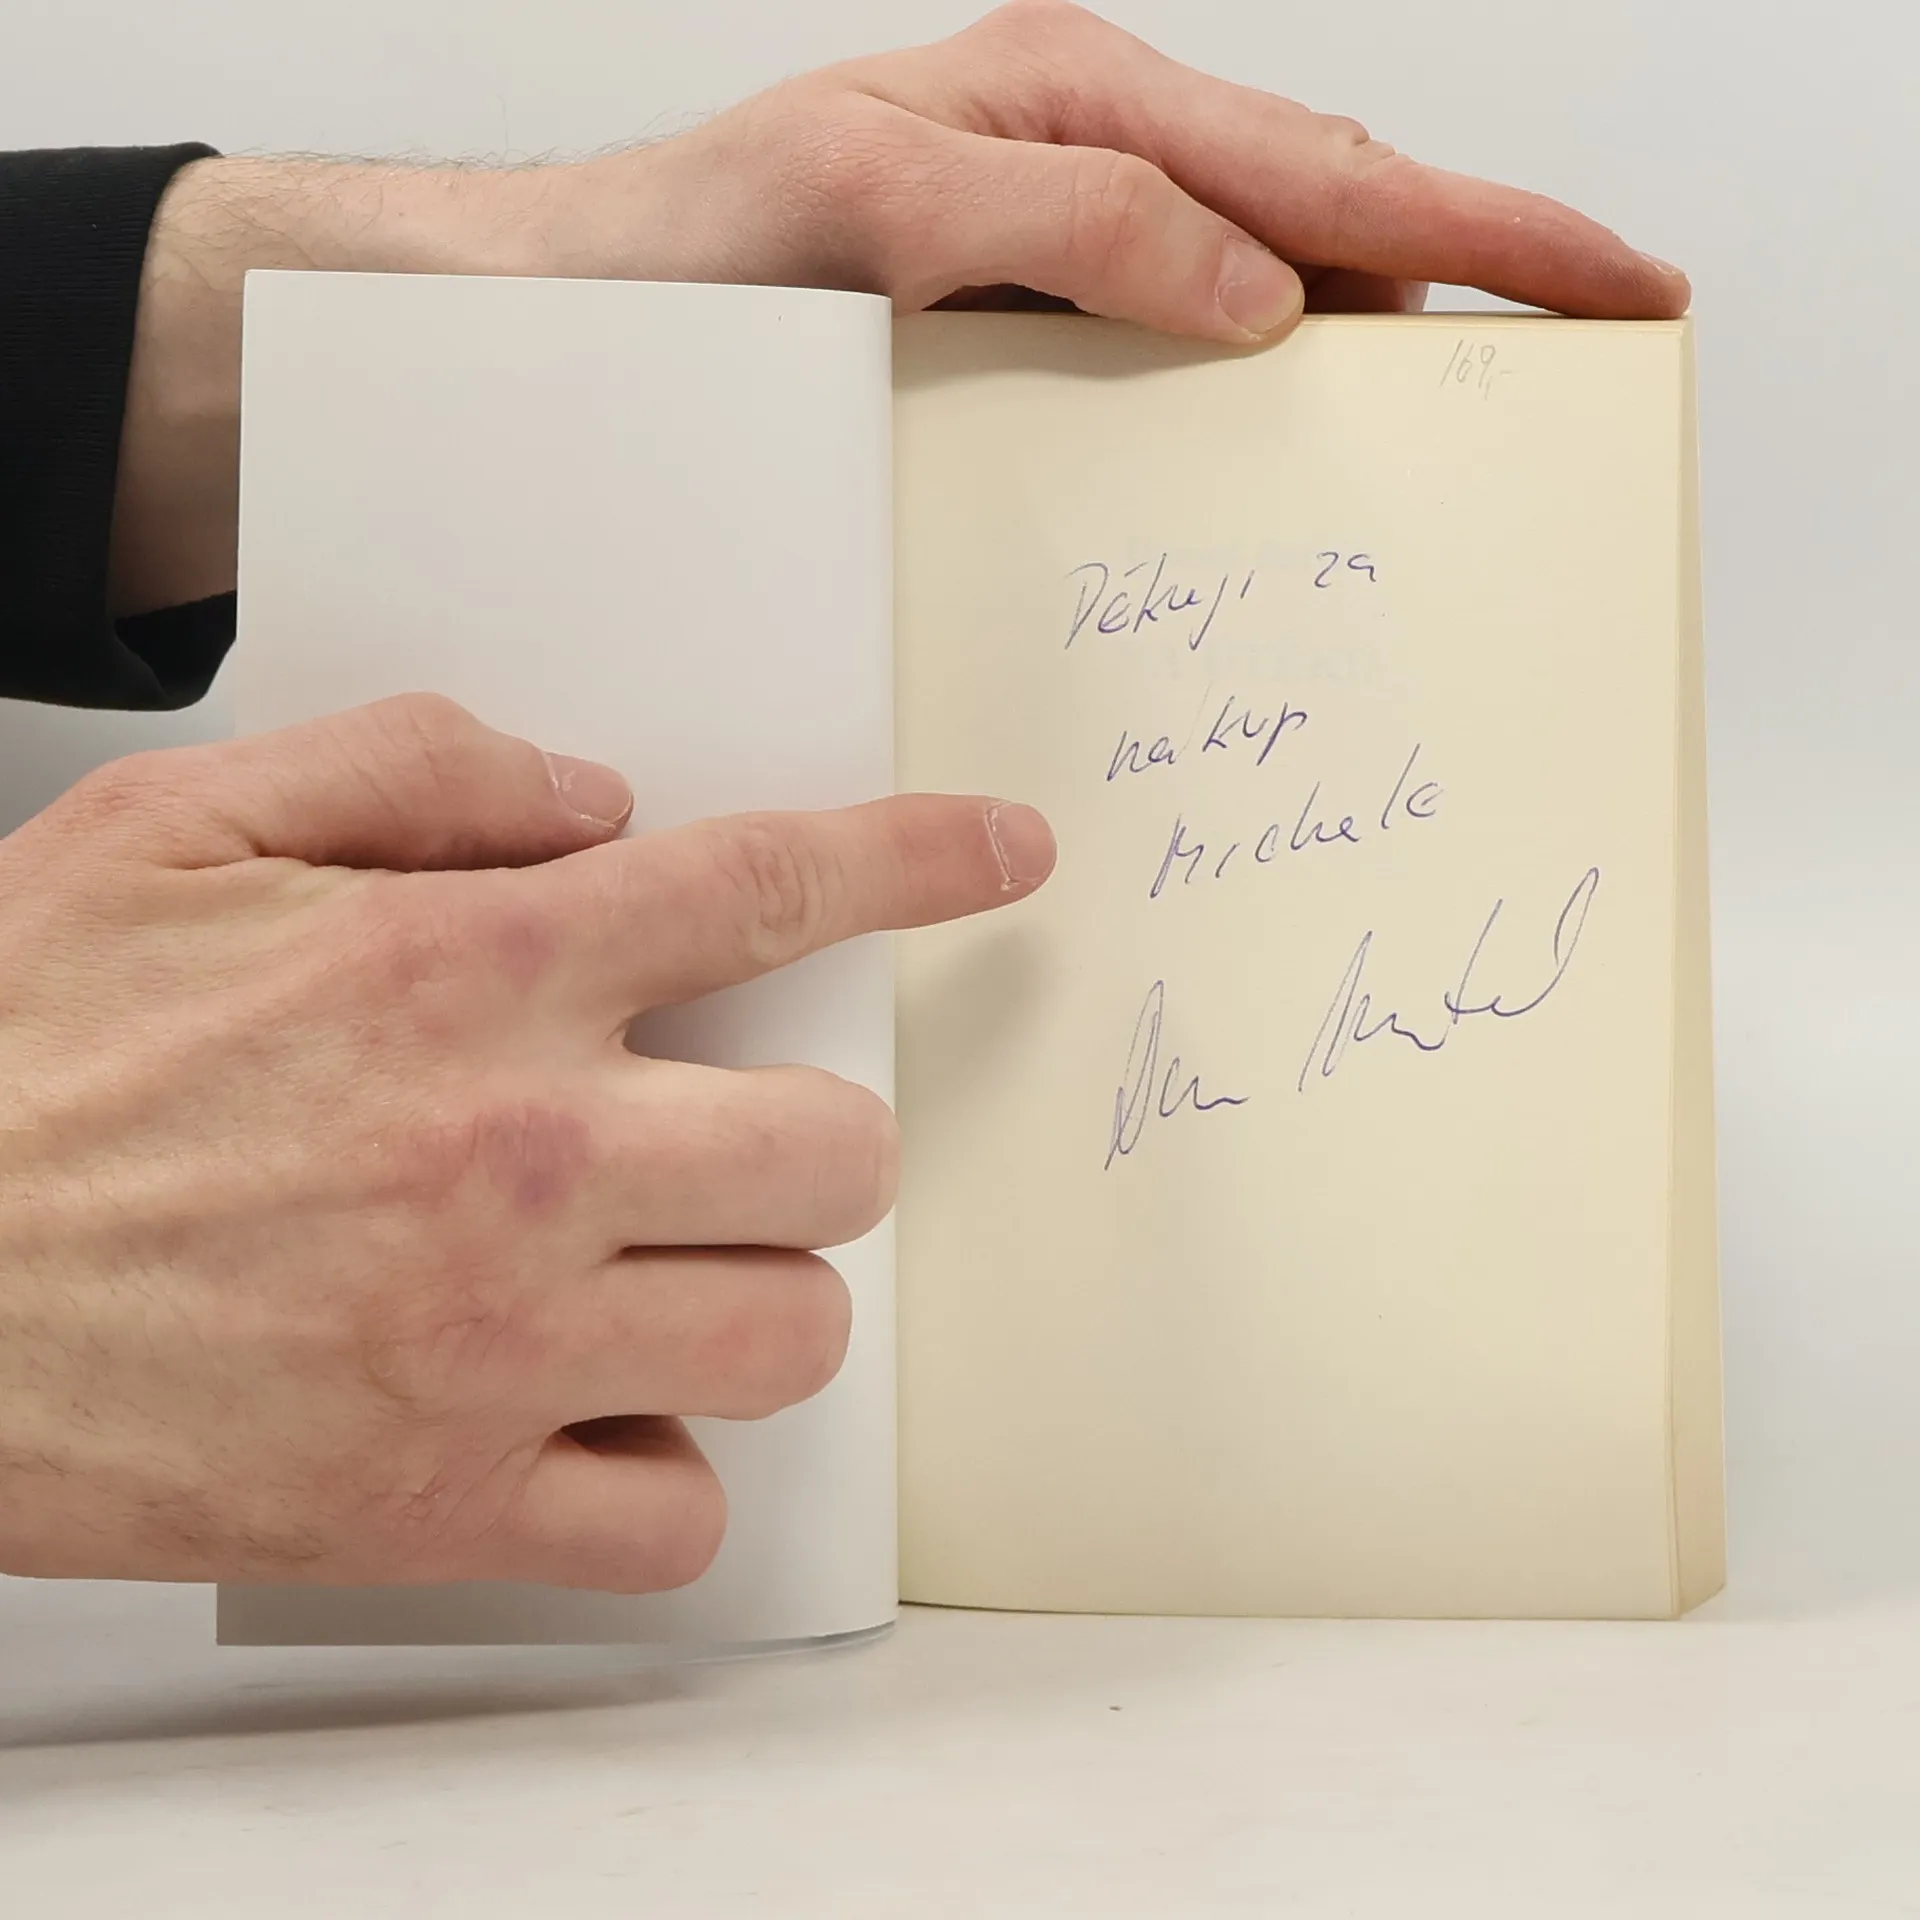 169,-
Děkuji za
nákup
Michele